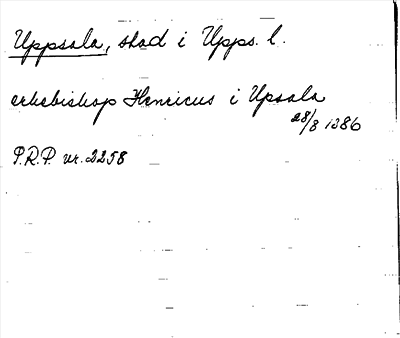 Uppsala, stad i Upps. l.
erkebiskop Henricus i Upsala
28/8 1386
P.R.P. nr. 2258